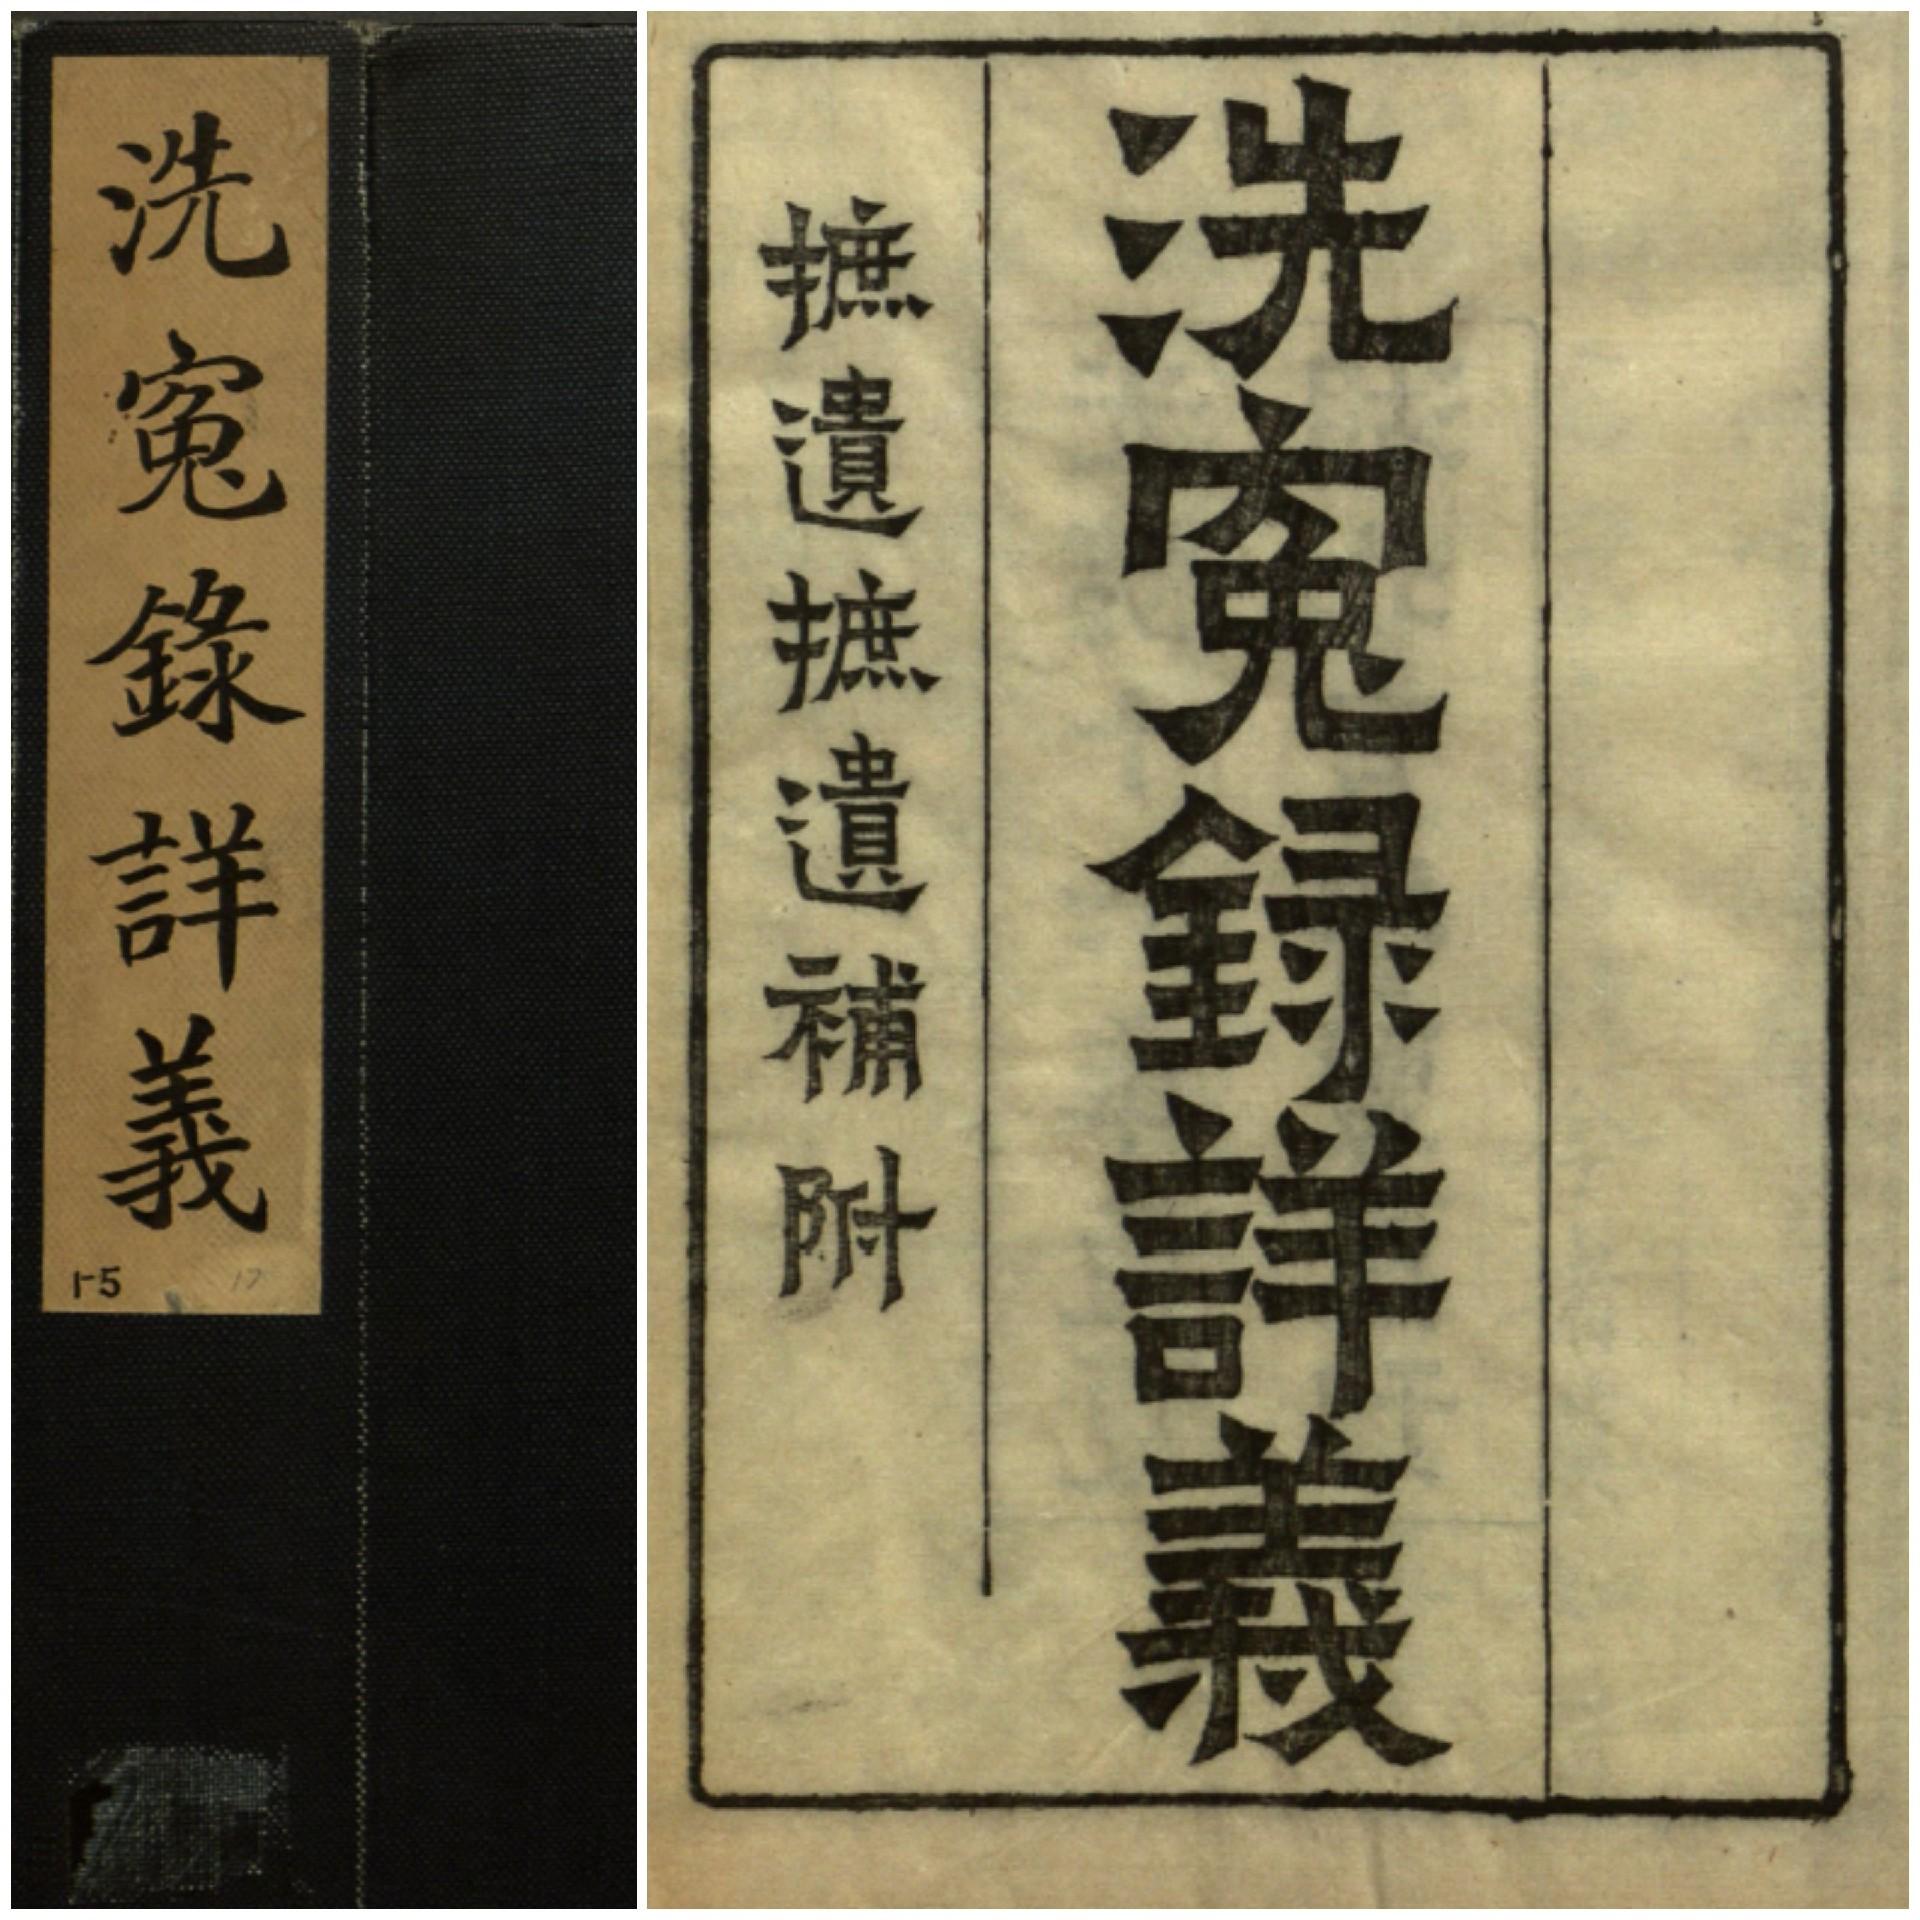 洗寃錄詳義
1-5
17
洗寃録詳義
摭遺摭遺補附